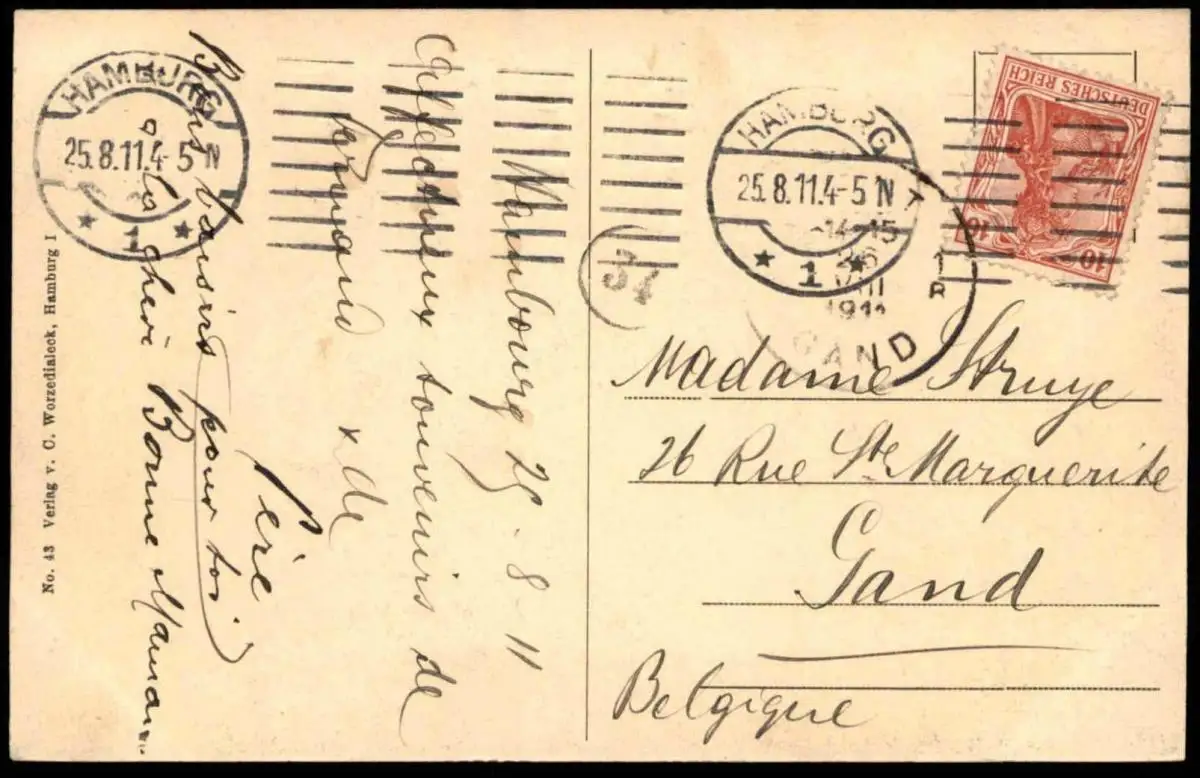 Hambourg 25-8-11
Affectueux souvenirs de
Fernand x de
Père
Bons baisers pour toi
ma chérie Bonne Maman
No. 43 Verlag v. C. Worzedialeck, Hamburg I
HAMBURG
25.8.11.4-5 N
* 1 *
34
HAMBURG
25.8.11.4-5 N
* 1 *
14-15
26
VIII
1911
GAND
DEUTSCHES REICH
10 10
Madame Struye
26 Rue Ste Marguerite
Gand
Belgique